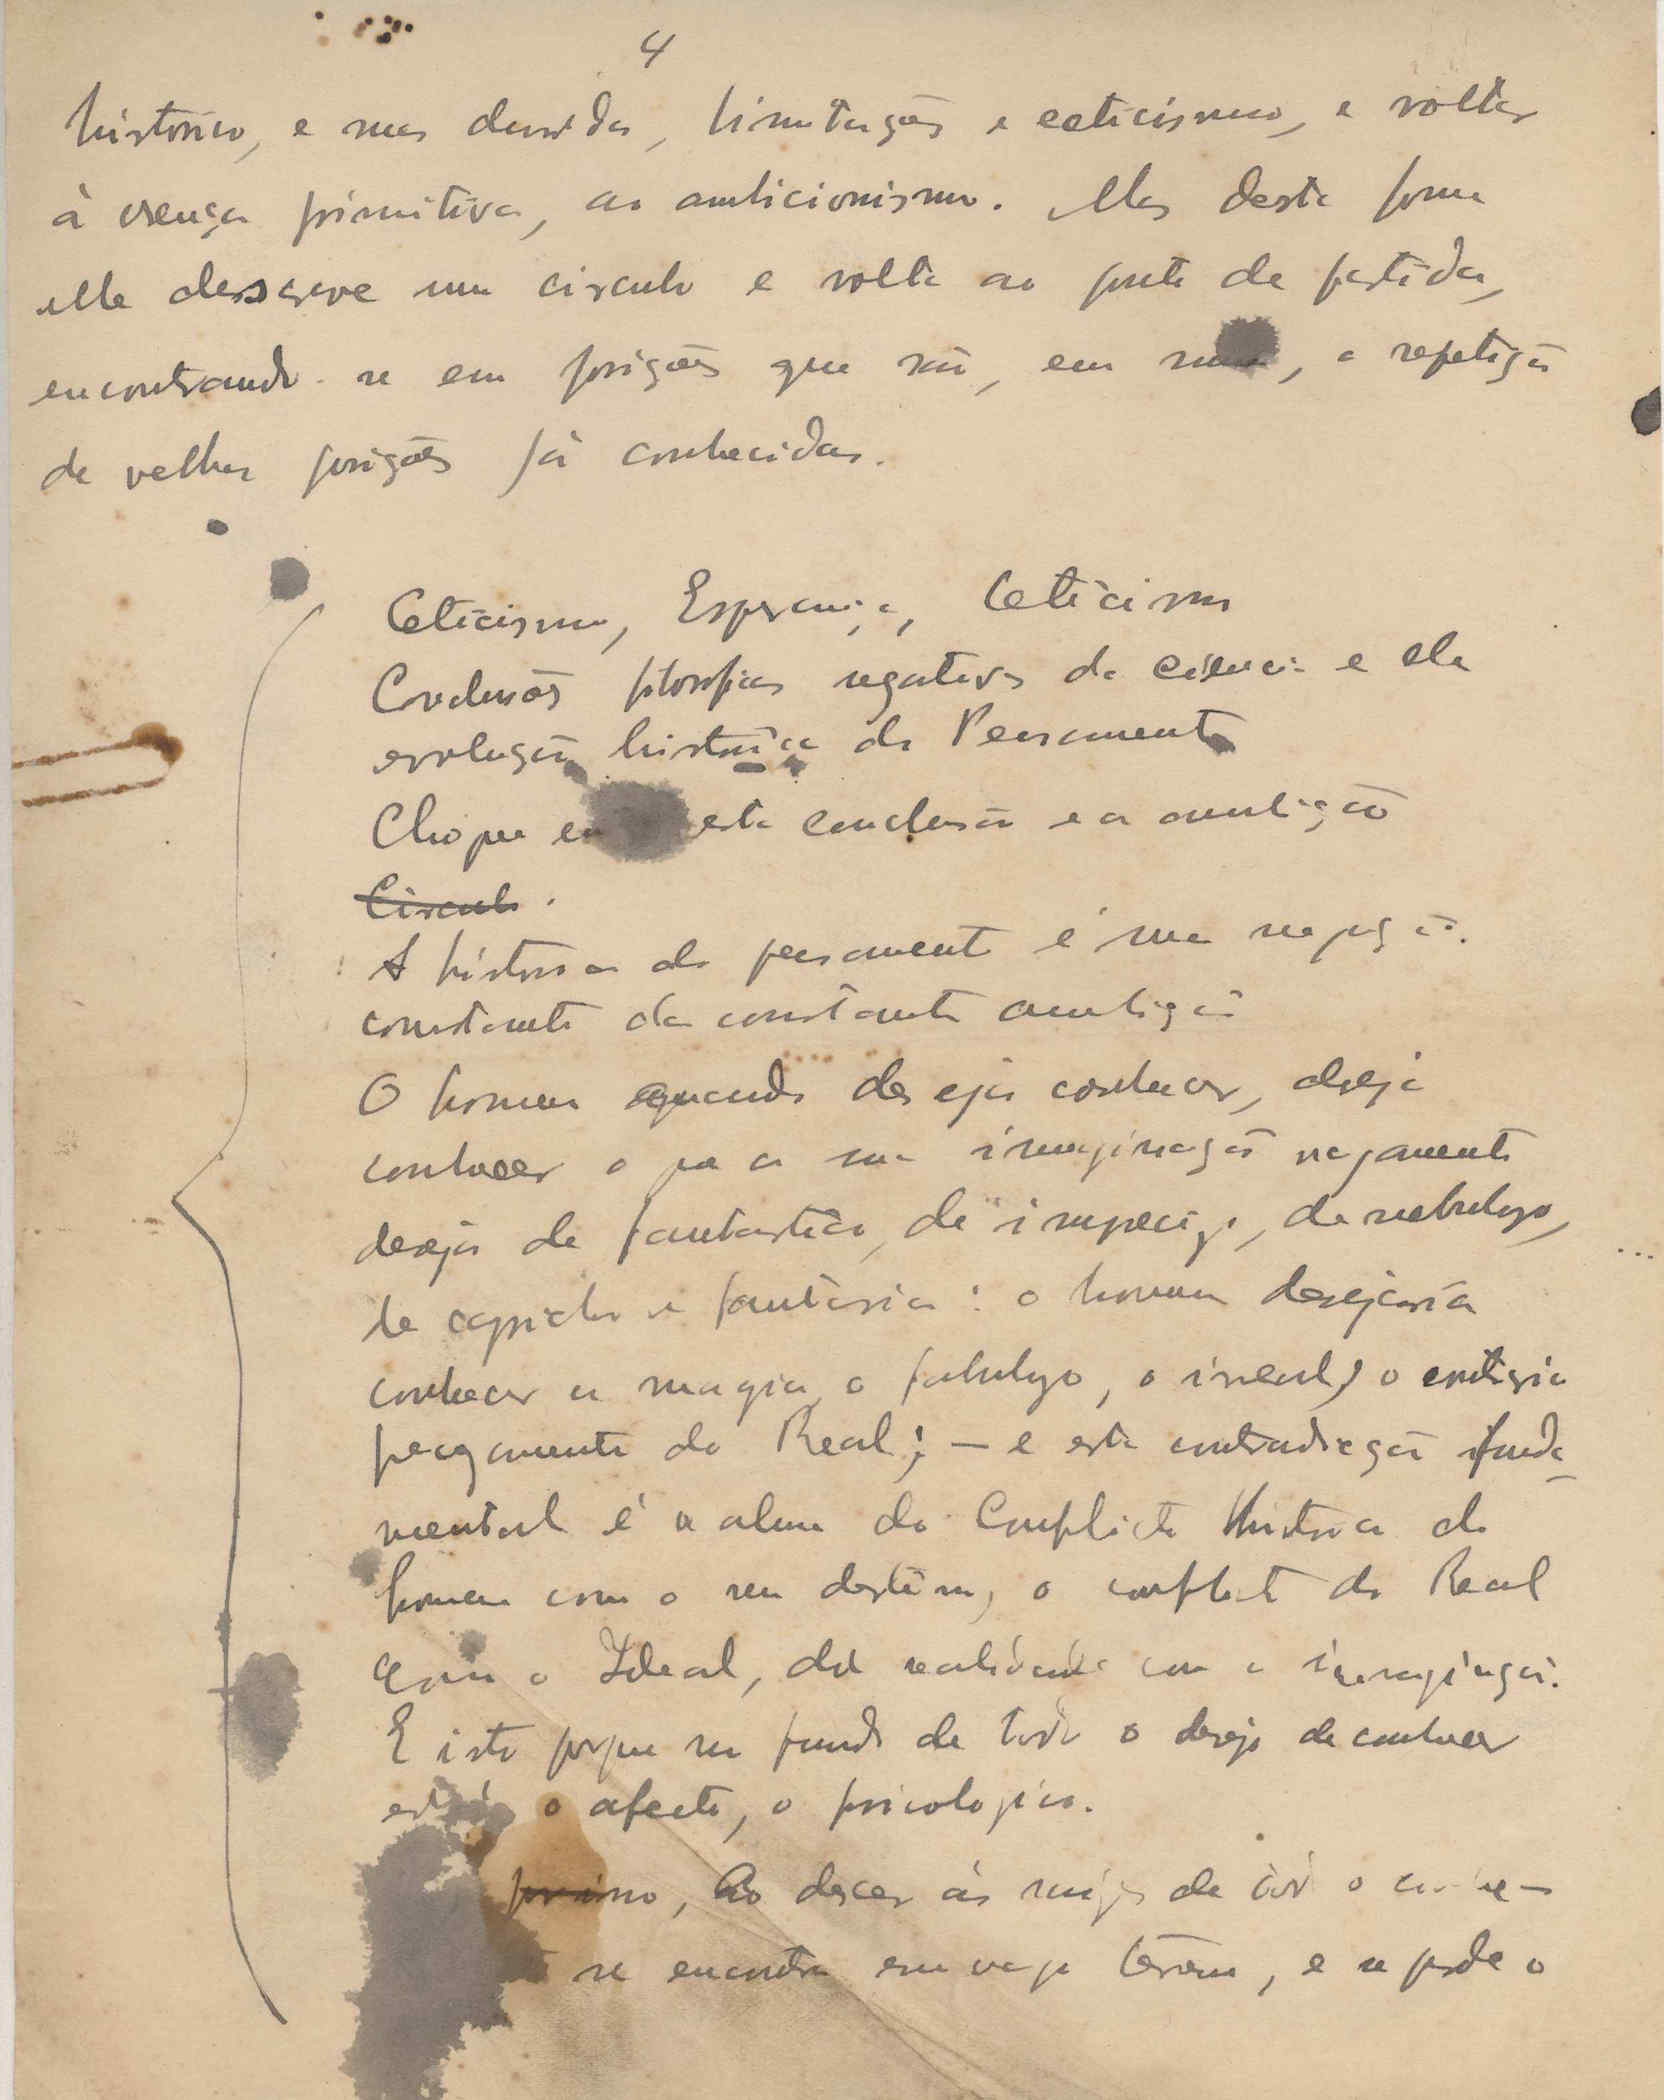 4
histórico, e suas duvidas, limitações e ceticismo, e voltar
à crença primitiva, ao ambicionismo. Mas desta forma
elle descreve um circulo e volta ao ponto de partida,
encontrando-se em posições que são, em suma, a repetição
de velhas posições já conhecidas.
Ceticismo, Esperança, Ceticismo
Conclusões filosoficas negativas da ciencia e da
evolução histórica do Pensamento
Choque esta conclusão e a ambição
Circulo.
A historia do pensamento é uma negação
constante da constante ambição
O homem quando deseja conhecer, deseja
conhecer o que a sua imaginação vagamente
deseja de fantastico, de impreciso, de nebuloso,
de capricho e fantasia: o homem desejaria
conhecer a magia, o fabuloso, o ireal, o contrario
precisamente do Real; — e esta contradição funda-
mental é a alma do Conflicto Historico do
homem com o seu destino, o conflito do Real
com o Ideal, da realidade com a imaginação.
E isto porque no fundo de todo o desejo de conhecer
está o afecto, o psicologico.
Ao descer ás raizes de todo o conhe-
se encontra em vago terreno, e se perde o